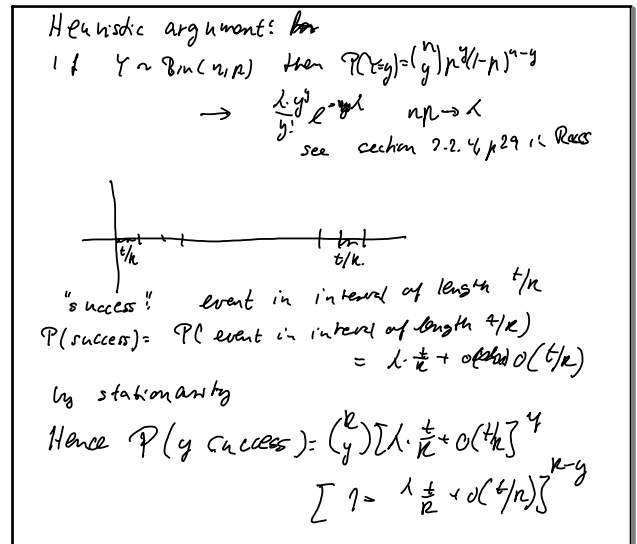 Heuristic argument:
If Y ~ Bin(n,p) then P(Y=y)=(n y) p^y(1-p)^{n-y}
→ λ·y^y/y! e^{-λ} np → λ
see section 2.2.4, p29 in Ross
t/k t/k.
"success": event in interval of length t/k
P(success)= P( event in interval of length t/k)
= λ·t/k + o(t/k)
by stationarity
Hence P(y success)=(k y)[λ·t/k + o(t/k)]^y
[1- λ t/k + o(t/k)]^{k-y}